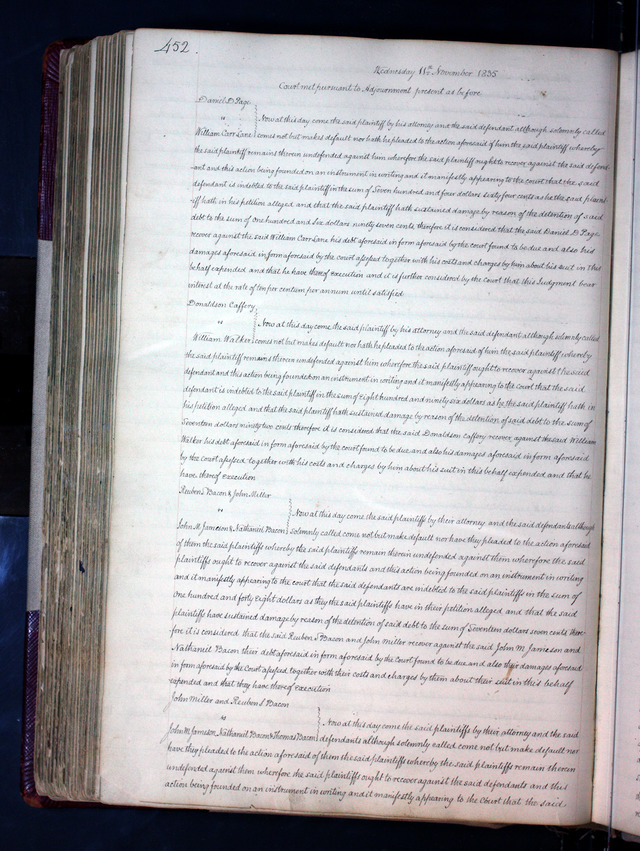 452.
Wednesday 11th November 1835
Court met pursuant to Adjournment present as before
Daniel D Page
vs
Now at this day come the said plaintiff by his attorney and the said defendant although solemnly called
William Carr Lane comes not but makes default nor hath he pleaded to the action aforesaid of him the said plaintiff whereby
the said plaintiff remains therein undefended against him wherefore the said plaintiff ought to recover against the said defend-
-ant and this action being founded on an instrument in writing and it manifestly appearing to the court that the said
defendant is indebted to the said plaintiff in the sum of Seven hundred and four dollars sixty four cents as he the said plaint-
iff hath in his petition alleged and that the said plaintiff hath sustained damage by reason of the detention of said
debt to the sum of one hundred and six dollars ninety seven cents, therefore it is considered that the said Daniel D Page
recover against the said William Carr Lane his debt aforesaid in form aforesaid by the court found to be due and also his
damages aforesaid in form aforesaid by the court assessed together with his costs and charges by him about his suit in this
behalf expended and that he have thereof execution and it is further considered by the Court that this Judgment bear
interest at the rate of ten per centum per annum until satisfied
Donaldson Caffery
vs
Now at this day come the said plaintiff by his attorney and the said defendant although solemnly called
William Walker comes not but makes default nor hath he pleaded to the action aforesaid of him the said plaintiff whereby
the said plaintiff remains therein undefended against him wherefore the said plaintiff ought to recover against the said
defendant and this action being founded on an instrument in writing and it manifestly appearing to the court that the said
defendant is indebted to the said plaintiff in the sum of eight hundred and ninety six dollars as he the said plaintiff hath in
his petition alleged and that the said plaintiff hath sustained damage by reason of the detention of said debt to the sum of
Seventeen dollars ninety two cents therefore it is considered that the said Donaldson Caffery recover against the said William
Walker his debt aforesaid in form aforesaid by the court found to be due and also his damages aforesaid in form aforesaid
by the court assessed together with his costs and charges by him about his suit in this behalf expended and that he
have thereof execution
Reuben S Bacon & John Miller
vs
Now at this day come the said plaintiffs by their attorney and the said defendants although
John M. Jameson & Nathaniel Bacon solemnly called come not but make default nor have they pleaded to the action aforesaid
of them the said plaintiffs whereby the said plaintiffs remain therein undefended against them wherefore the said
plaintiffs ought to recover against the said defendants and this action being founded on an instrument in writing
and it manifestly appearing to the court that the said defendants are indebted to the said plaintiffs in the sum of
one hundred and forty eight dollars as they the said plaintiffs have in their petition alleged and that the said
plaintiffs have sustained damage by reason of the detention of said debt to the sum of Seventeen dollars seven cents. there-
fore it is considered that the said Reuben S Bacon and John Miller recover against the said John M. Jameson and
Nathaniel Bacon their debt aforesaid in form aforesaid by the Court found to be due and also their damages aforesaid
in form aforesaid by the Court assessed together with their costs and charges by them about their suit in this behalf
expended and that they have thereof execution
John Miller and Reuben S Bacon
vs
Now at this day come the said plaintiffs by their attorney and the said
John M. Jameson, Nathaniel Bacon & Thomas Bacon defendants although solemnly called come not but make default nor
have they pleaded to the action aforesaid of them the said plaintiffs whereby the said plaintiffs remain therein
undefended against them wherefore the said plaintiffs ought to recover against the said defendants and this
action being founded on an instrument in writing and it manifestly appearing to the Court that the said